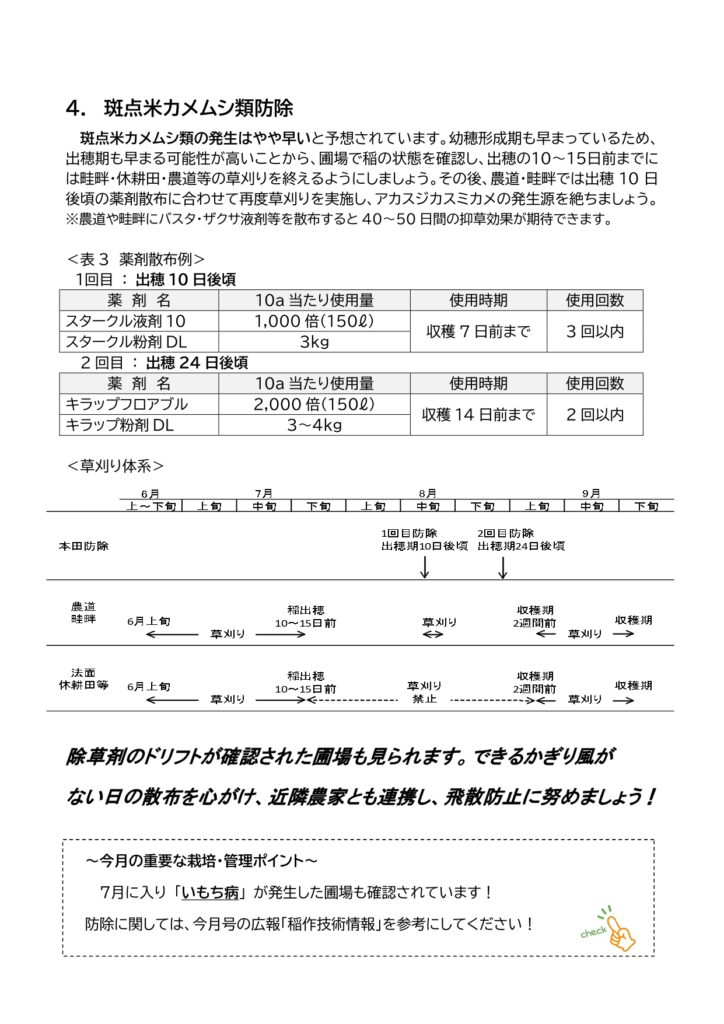 4. 斑点米カメムシ類防除
斑点米カメムシ類の発生はやや早いと予想されています。幼穂形成期も早まっているため、
出穂期も早まる可能性が高いことから、圃場で稲の状態を確認し、出穂の10～15日前までに
は畦畔・休耕田・農道等の草刈りを終えるようにしましょう。その後、農道・畦畔では出穂 10 日
後頃の薬剤散布に合わせて再度草刈りを実施し、アカスジカスミカメの発生源を絶ちましょう。
※農道や畦畔にバスタ・ザクサ液剤等を散布すると 40～50 日間の抑草効果が期待できます。
＜表3 薬剤散布例＞
1回目 ： 出穂 10 日後頃
薬 剤 名 10a 当たり使用量 使用時期 使用回数
スタークル液剤 10 1,000 倍(150ℓ) 収穫 7 日前まで 3 回以内
スタークル粉剤 DL 3kg
2 回目 ： 出穂 24 日後頃
薬 剤 名 10a 当たり使用量 使用時期 使用回数
キラップフロアブル 2,000 倍(150ℓ) 収穫 14 日前まで 2 回以内
キラップ粉剤 DL 3～4kg
＜草刈り体系＞
6月 7月 8月 9月
上～下旬 上旬 中旬 下旬 上旬 中旬 下旬 上旬 中旬 下旬
本田防除
1回目防除 2回目防除
出穂期10日後頃 出穂期24日後頃
農道
畦畔
6月上旬 草刈り 稲出穂
10～15日前
草刈り
収穫期
2週間前
草刈り 収穫期
法面
休耕田等
6月上旬 草刈り 稲出穂
10～15日前
草刈り
禁止
収穫期
2週間前
草刈り 収穫期
除草剤のドリフトが確認された圃場も見られます。できるかぎり風が
ない日の散布を心がけ、近隣農家とも連携し、飛散防止に努めましょう！
～今月の重要な栽培・管理ポイント～
7月に入り「いもち病」が発生した圃場も確認されています！
防除に関しては、今月号の広報「稲作技術情報」を参考にしてください！
check